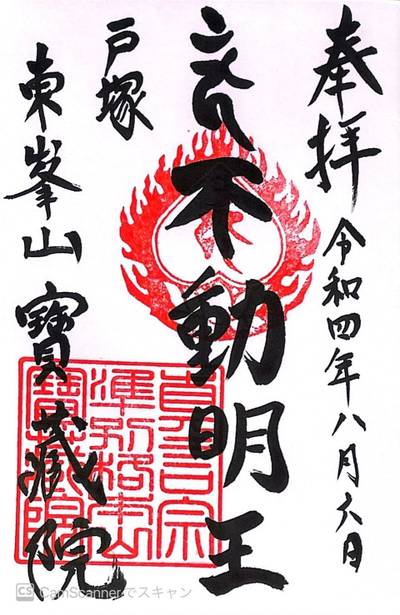 奉拝 令和四年八月六日
不動明王
戸塚
東峯山 寶蔵院
眞言宗
準別格本山
寶蔵院
CS CamScannerでスキャン